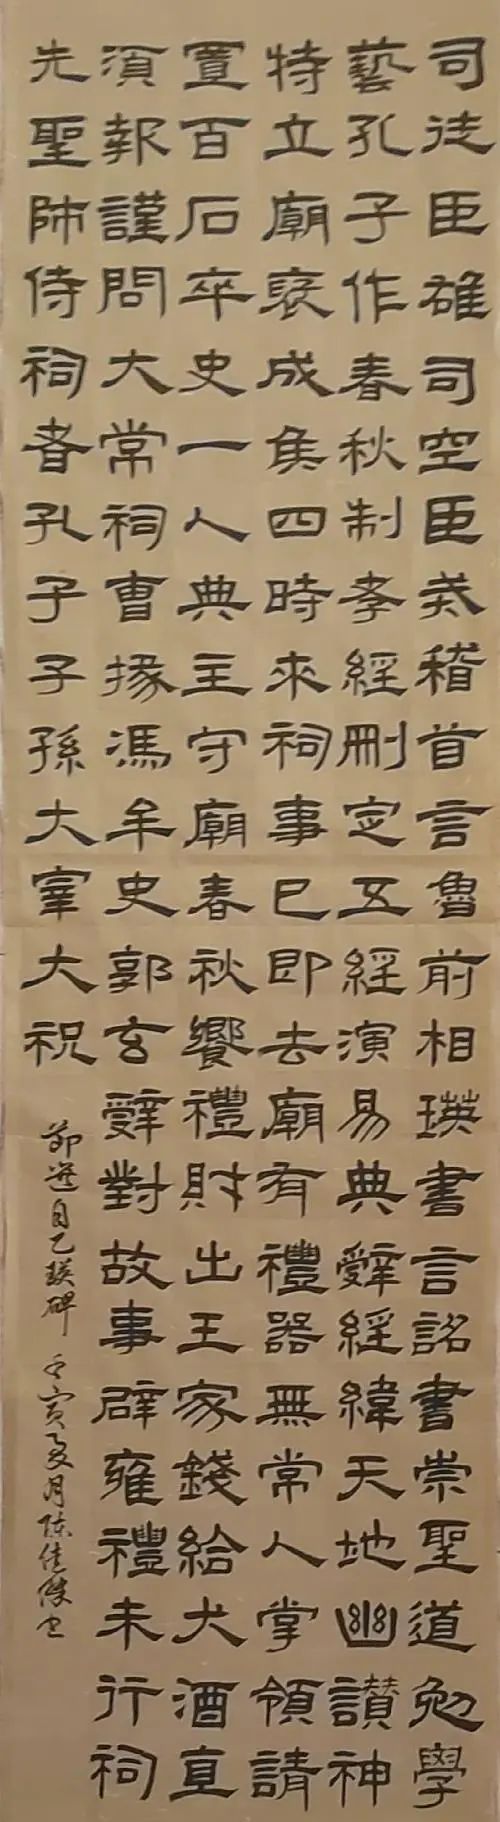 司徒臣雄司空臣戒稽首言魯前相瑛書言詔書崇聖道勉學
藝孔子作春秋制孝經刪定五經演易典辭經緯天地幽讃神
特立廟褒成侯四時來祠事已即去廟有禮器無常人掌領請
置百石卒史一人典主守廟春秋饗禮財出王家錢給犬酒直
須報謹問大常祠曹掾馮牟史郭玄辭對故事辟雍禮未行祠
先聖師侍祠者孔子子孫大宰大祝
節選自乙瑛碑 壬寅夏月陈佳俊书